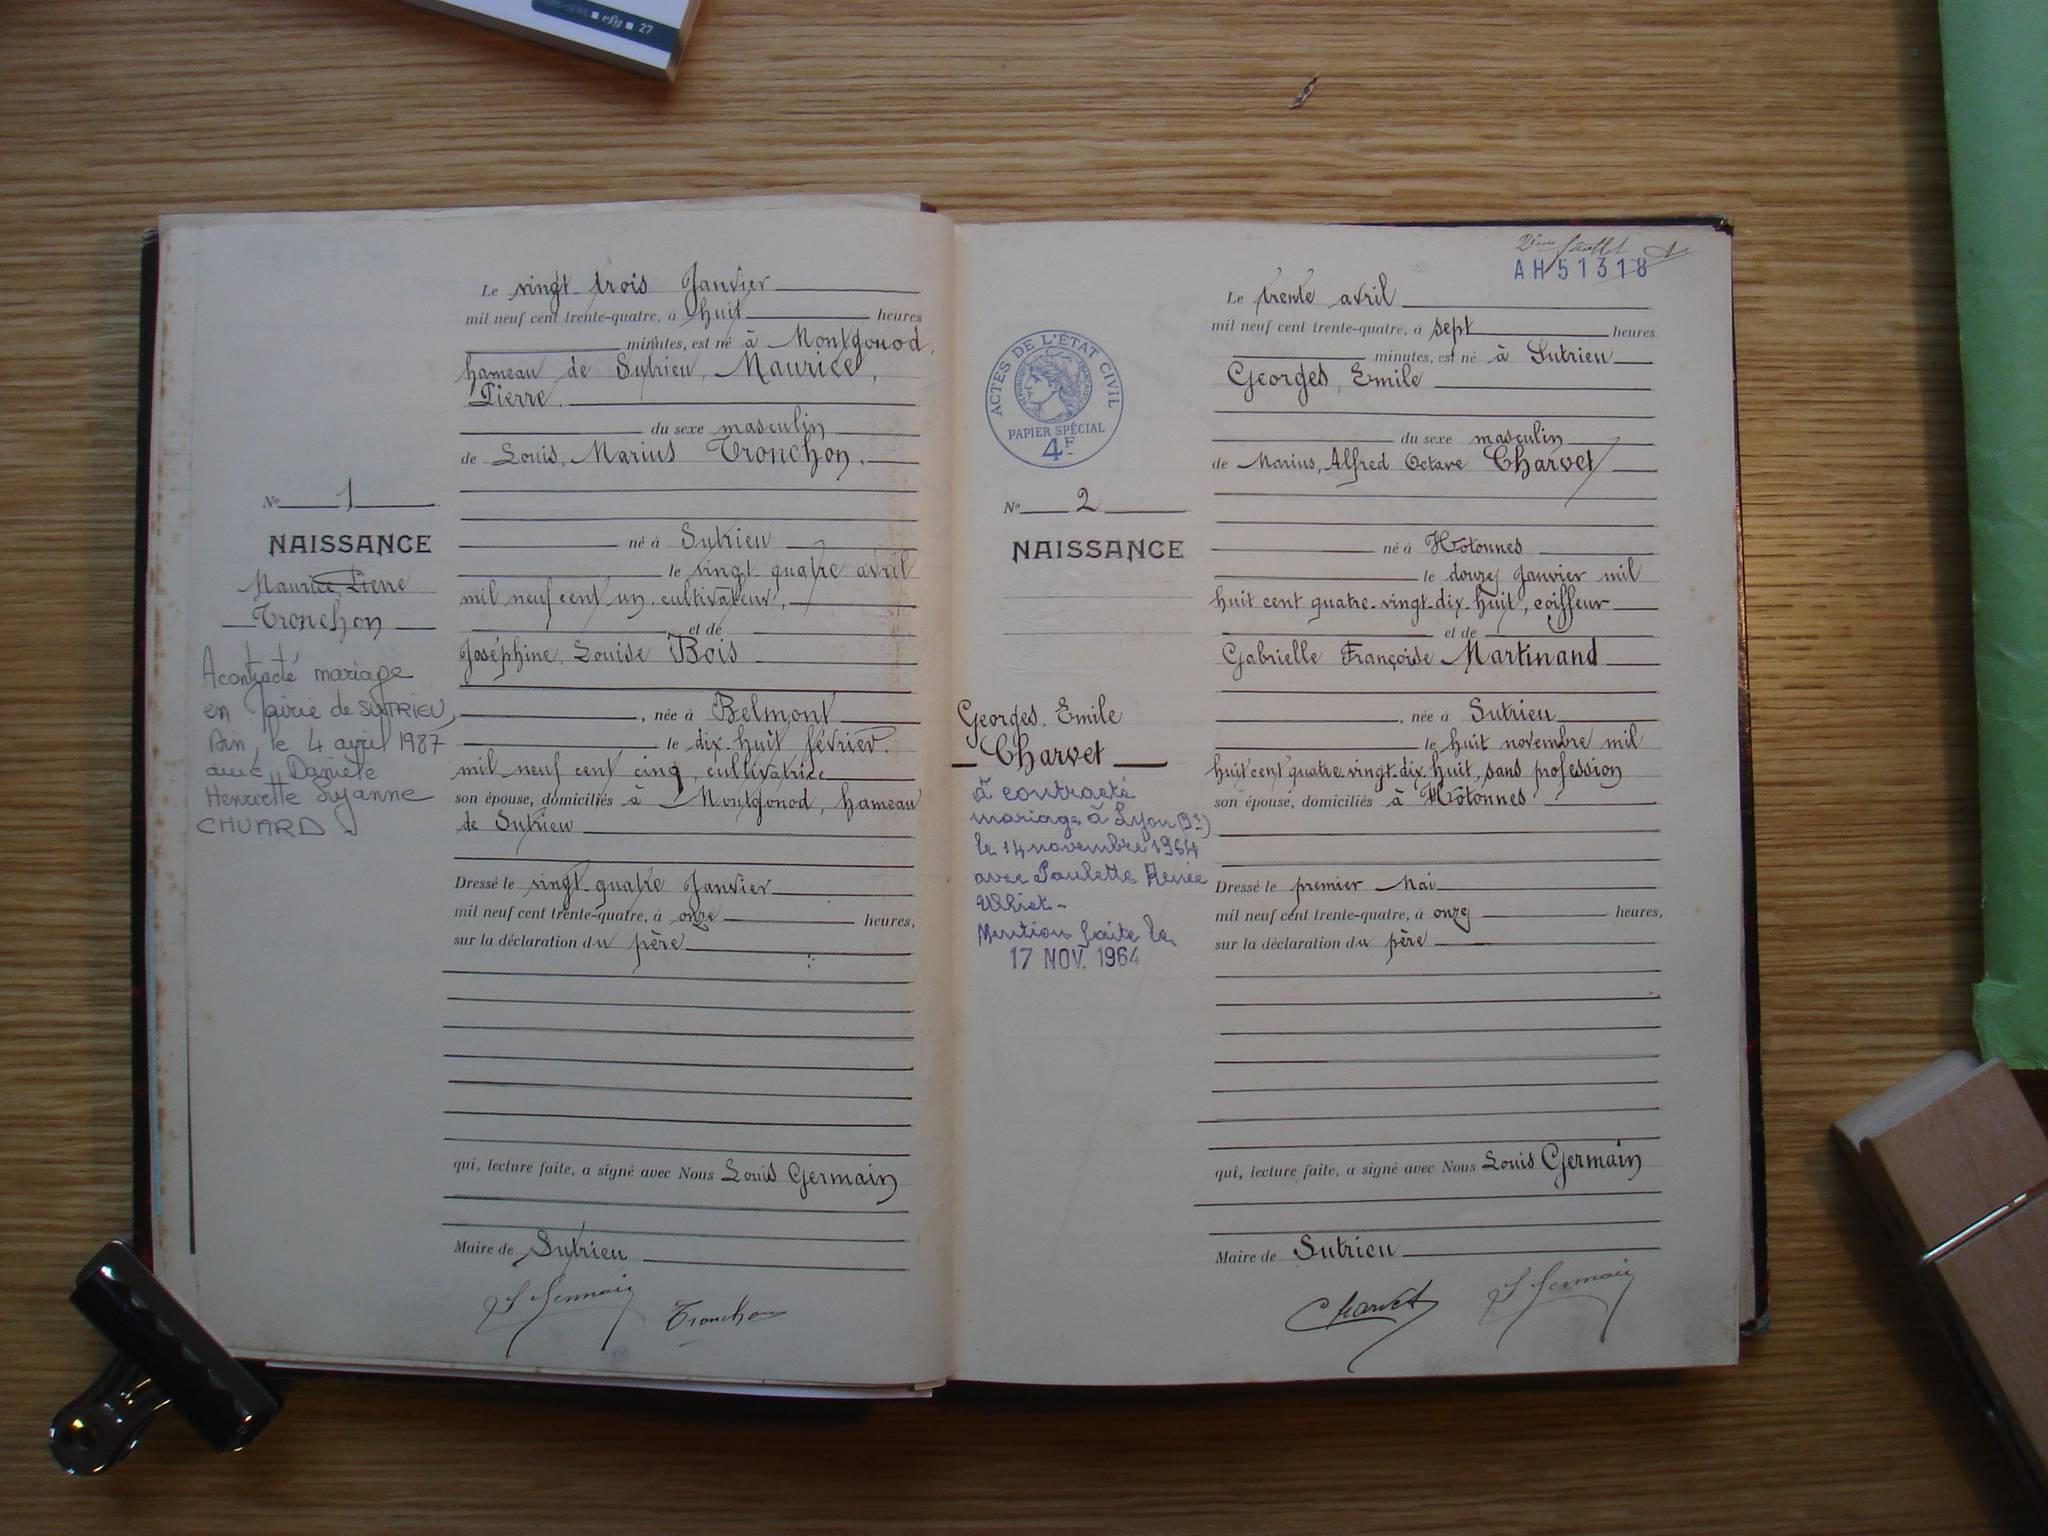 rfg ■ 27
Le vingt-trois Janvier
mil neuf cent trente-quatre, à huit heures
minutes, est né à Montgonod,
hameau de Sutrieu, Maurice,
Pierre.
du sexe masculin
de Louis, Marius Tronchon.
né à Sutrieu
le vingt-quatre avril
mil neuf cent un, cultivateur,
et de
Joséphine, Louise Bois
, née à Belmont
le dix-huit février
mil neuf cent cinq, cultivatrice
son épouse, domiciliés à Montgonod, hameau
de Sutrieu
Dressé le vingt-quatre Janvier
mil neuf cent trente-quatre, à onze heures,
sur la déclaration du père
qui, lecture faite, a signé avec Nous Louis Germain
Maire de Sutrieu
L Germain Tronchon
No 1
NAISSANCE
Maurice Pierre
Tronchon
A contracté mariage
en Mairie de SUTRIEU,
Ain, le 4 avril 1987
avec Danièle
Henriette Suzanne
CHUARD
2ème feuillet
AH 51318
ACTES DE L'ÉTAT CIVIL
PAPIER SPÉCIAL
4F
Le trente avril
mil neuf cent trente-quatre, à sept heures
minutes, est né à Sutrieu
Georges, Emile
du sexe masculin
de Marius, Alfred Octave Charvet
né à Hotonnes
le douze Janvier mil
huit cent quatre-vingt-dix-huit, coiffeur
et de
Gabrielle Françoise Martinand
, née à Sutrieu
le huit novembre mil
huit cent quatre-vingt-dix-huit, sans profession
son épouse, domiciliés à Hotonnes
Dressé le premier Mai
mil neuf cent trente-quatre, à onze heures,
sur la déclaration du père
qui, lecture faite, a signé avec Nous Louis Germain
Maire de Sutrieu
Charvet L Germain
No 2
NAISSANCE
Georges, Emile
Charvet
à contracté
mariage à Lyon (3e)
le 14 novembre 1964
avec Paulette Renée
Mention faite le
17 NOV. 1964